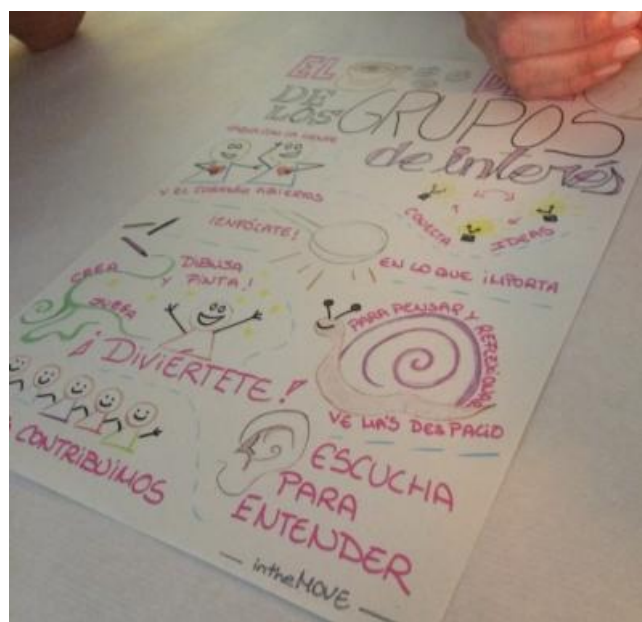 EL
DE LOS GRUPOS
de interés
CON LA MENTE
Y EL CORAZÓN ABIERTAS
CONECTA IDEAS
¡ENFÓCATE!
EN LO QUE IMPORTA
CREA
JUEGA
DIBUJA
Y PINTA!
¡DIVIÉRTETE!
PARA PENSAR Y REFLEXIONAR
VE MÁS DESPACIO
CONTRIBUIMOS
ESCUCHA
PARA
ENTENDER
intheMOVE